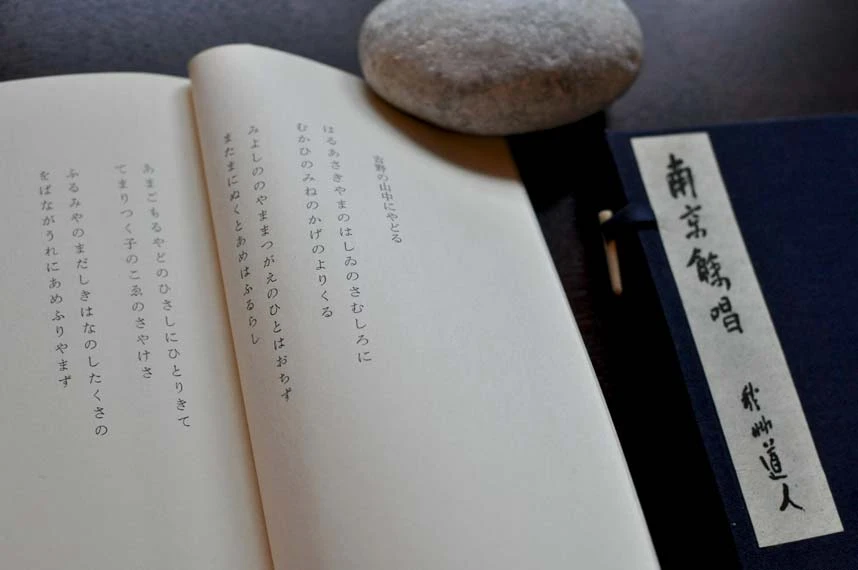 吉野の山中にやどる
はるあさきやまのはしゐのさむしろに
むかひのみねのかげのよりくる
みよしののやままつがえのひとはおちず
またまにぬくとあめはふるらし
あまごもるやどのひさしにひとりきて
てまりつく子のこゑのさやけさ
ふるみやのまだしきはなのしたくさの
をばながうれにあめふりやまず
南京餘唱
秋艸道人